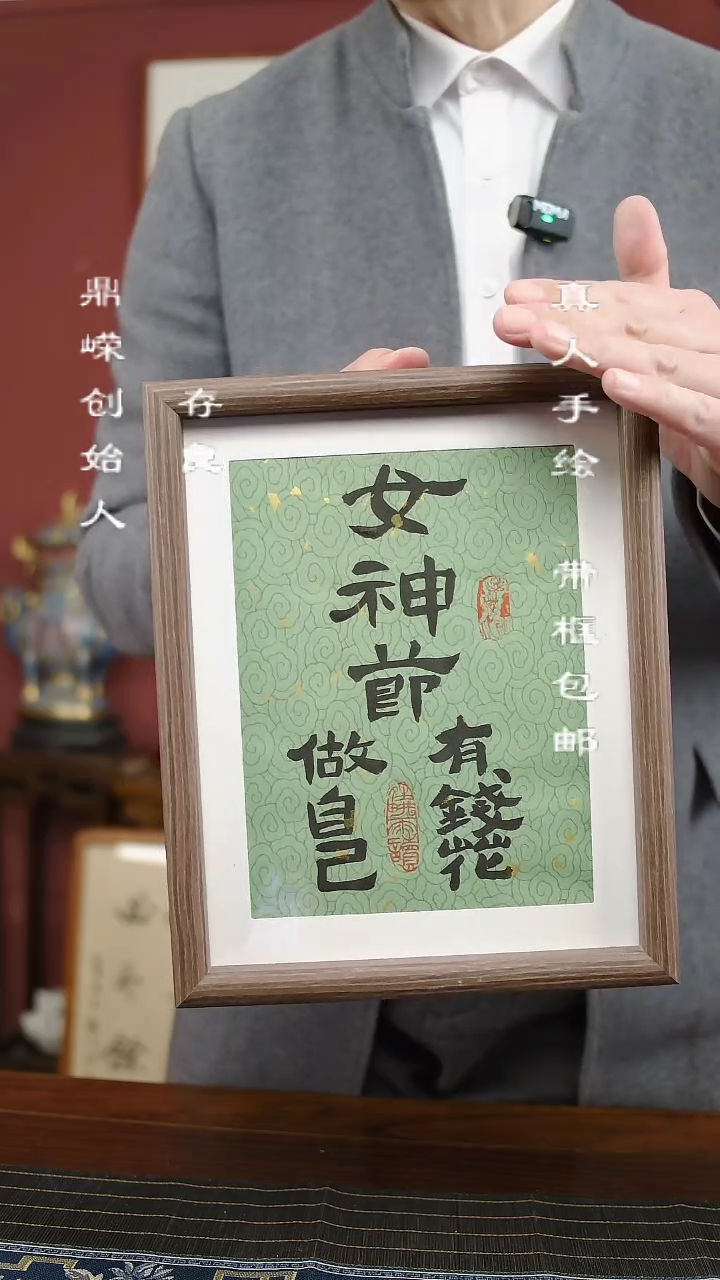 女神節
有錢花
做自己
真人手绘 带框包邮
鼎嵘创始人
存